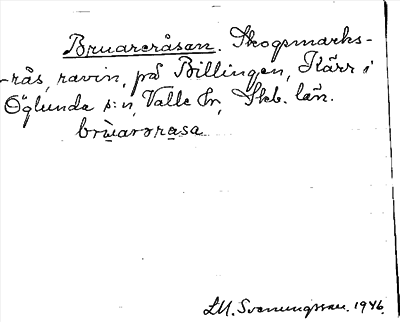 Bruareråsan. Skogsmarks-
-rås, ravin, på Billingen, Kärr i
Öglunda s:n, Valle hr, Skb. län.
brùarərasa
LM. Svenungsson. 1946.